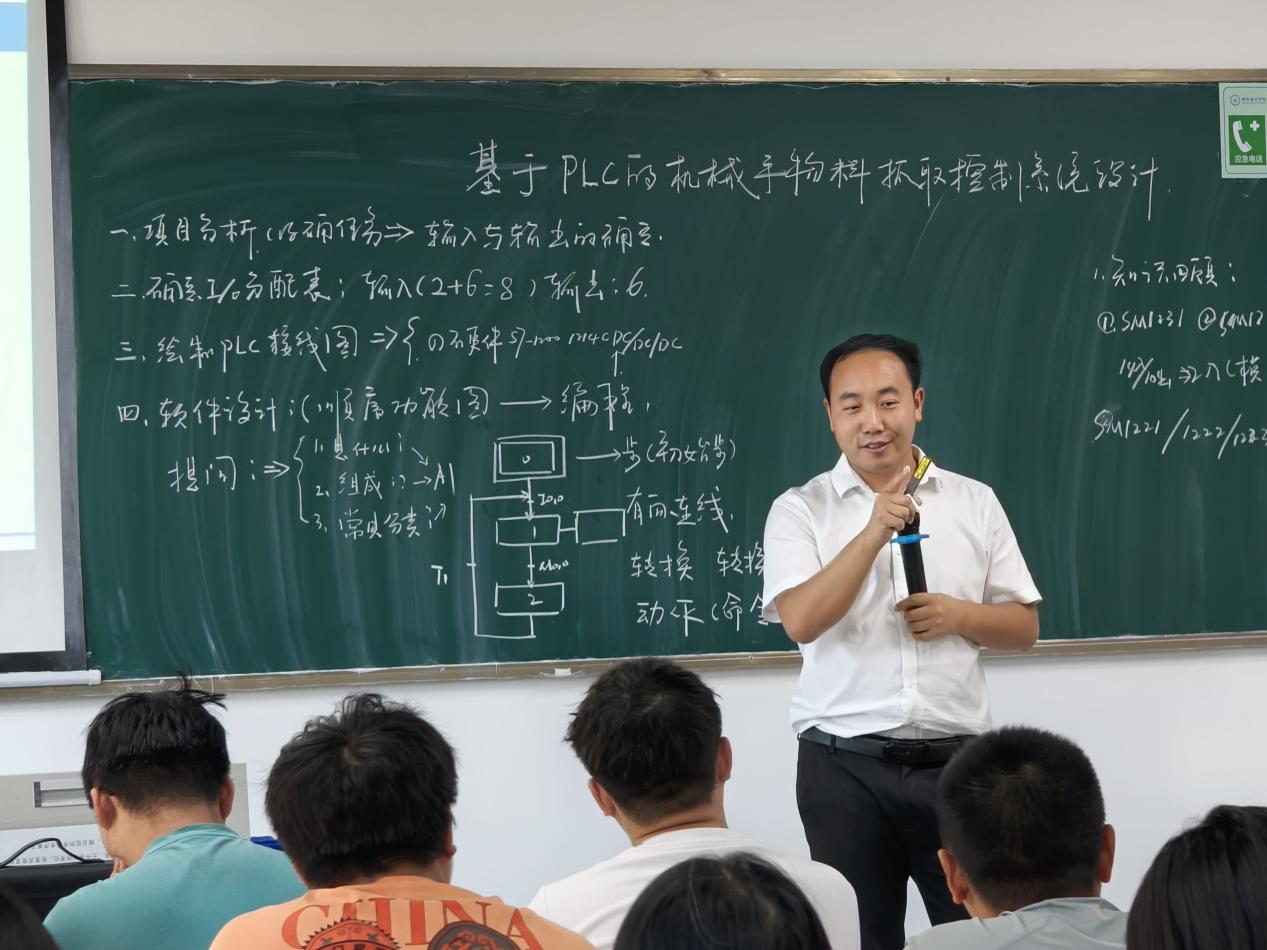 基于PLC的机械手物料抓取控制系统设计.
一.项目分析,(明确任务⇒ 输入与输出的确定.
二.确定I/O分配表: 输入(2+6=8) 输出:6.
三.绘制PLC接线图 ⇒{ ①硬件 S7-1200 1214C DC/DC/DC
四.软件设计:(顺序功能图 → 编程.
提问:⇒
1.是什么?
2.组成:? →AI
3.常见分类?
0 →步(初始步)
I0.0
1
有向连线.
M0.0
转换 转换
T1
2
动作(命令
1.知识回顾:
①SM1231 ②SM12
SM1221/1222/1223
应急电话
CHINA